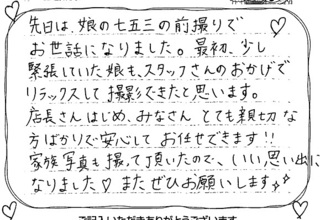 先日は、娘の七五三の前撮りで
お世話になりました。最初、少し
緊張していた娘も、スタッフさんのおかげで
リラックスして撮影できたと思います。
店長さんはじめ、みなさん とても親切な
方ばかりで安心して お任せできます!!
家族写真も撮って頂いたので、いい思い出に
なりました♡ またぜひお願いします✨
ご記入いただきありがとうございます